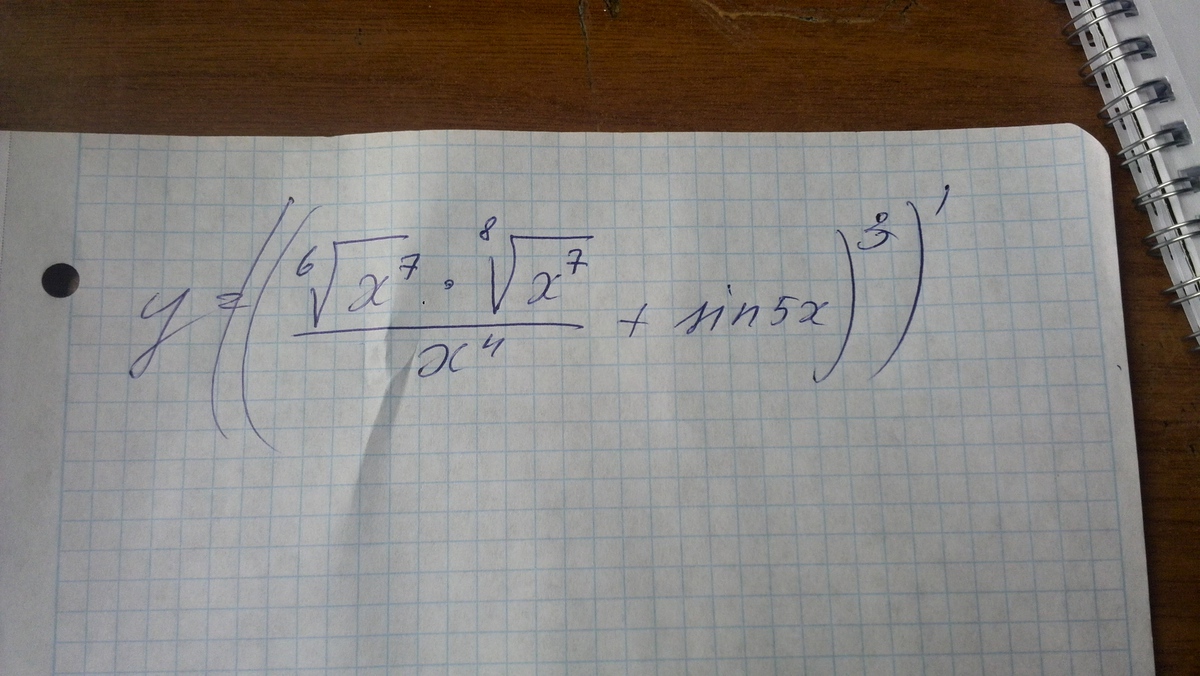 y = ((⁶√x⁷ · ⁸√x⁷ / x⁴ + sin5x)³)'